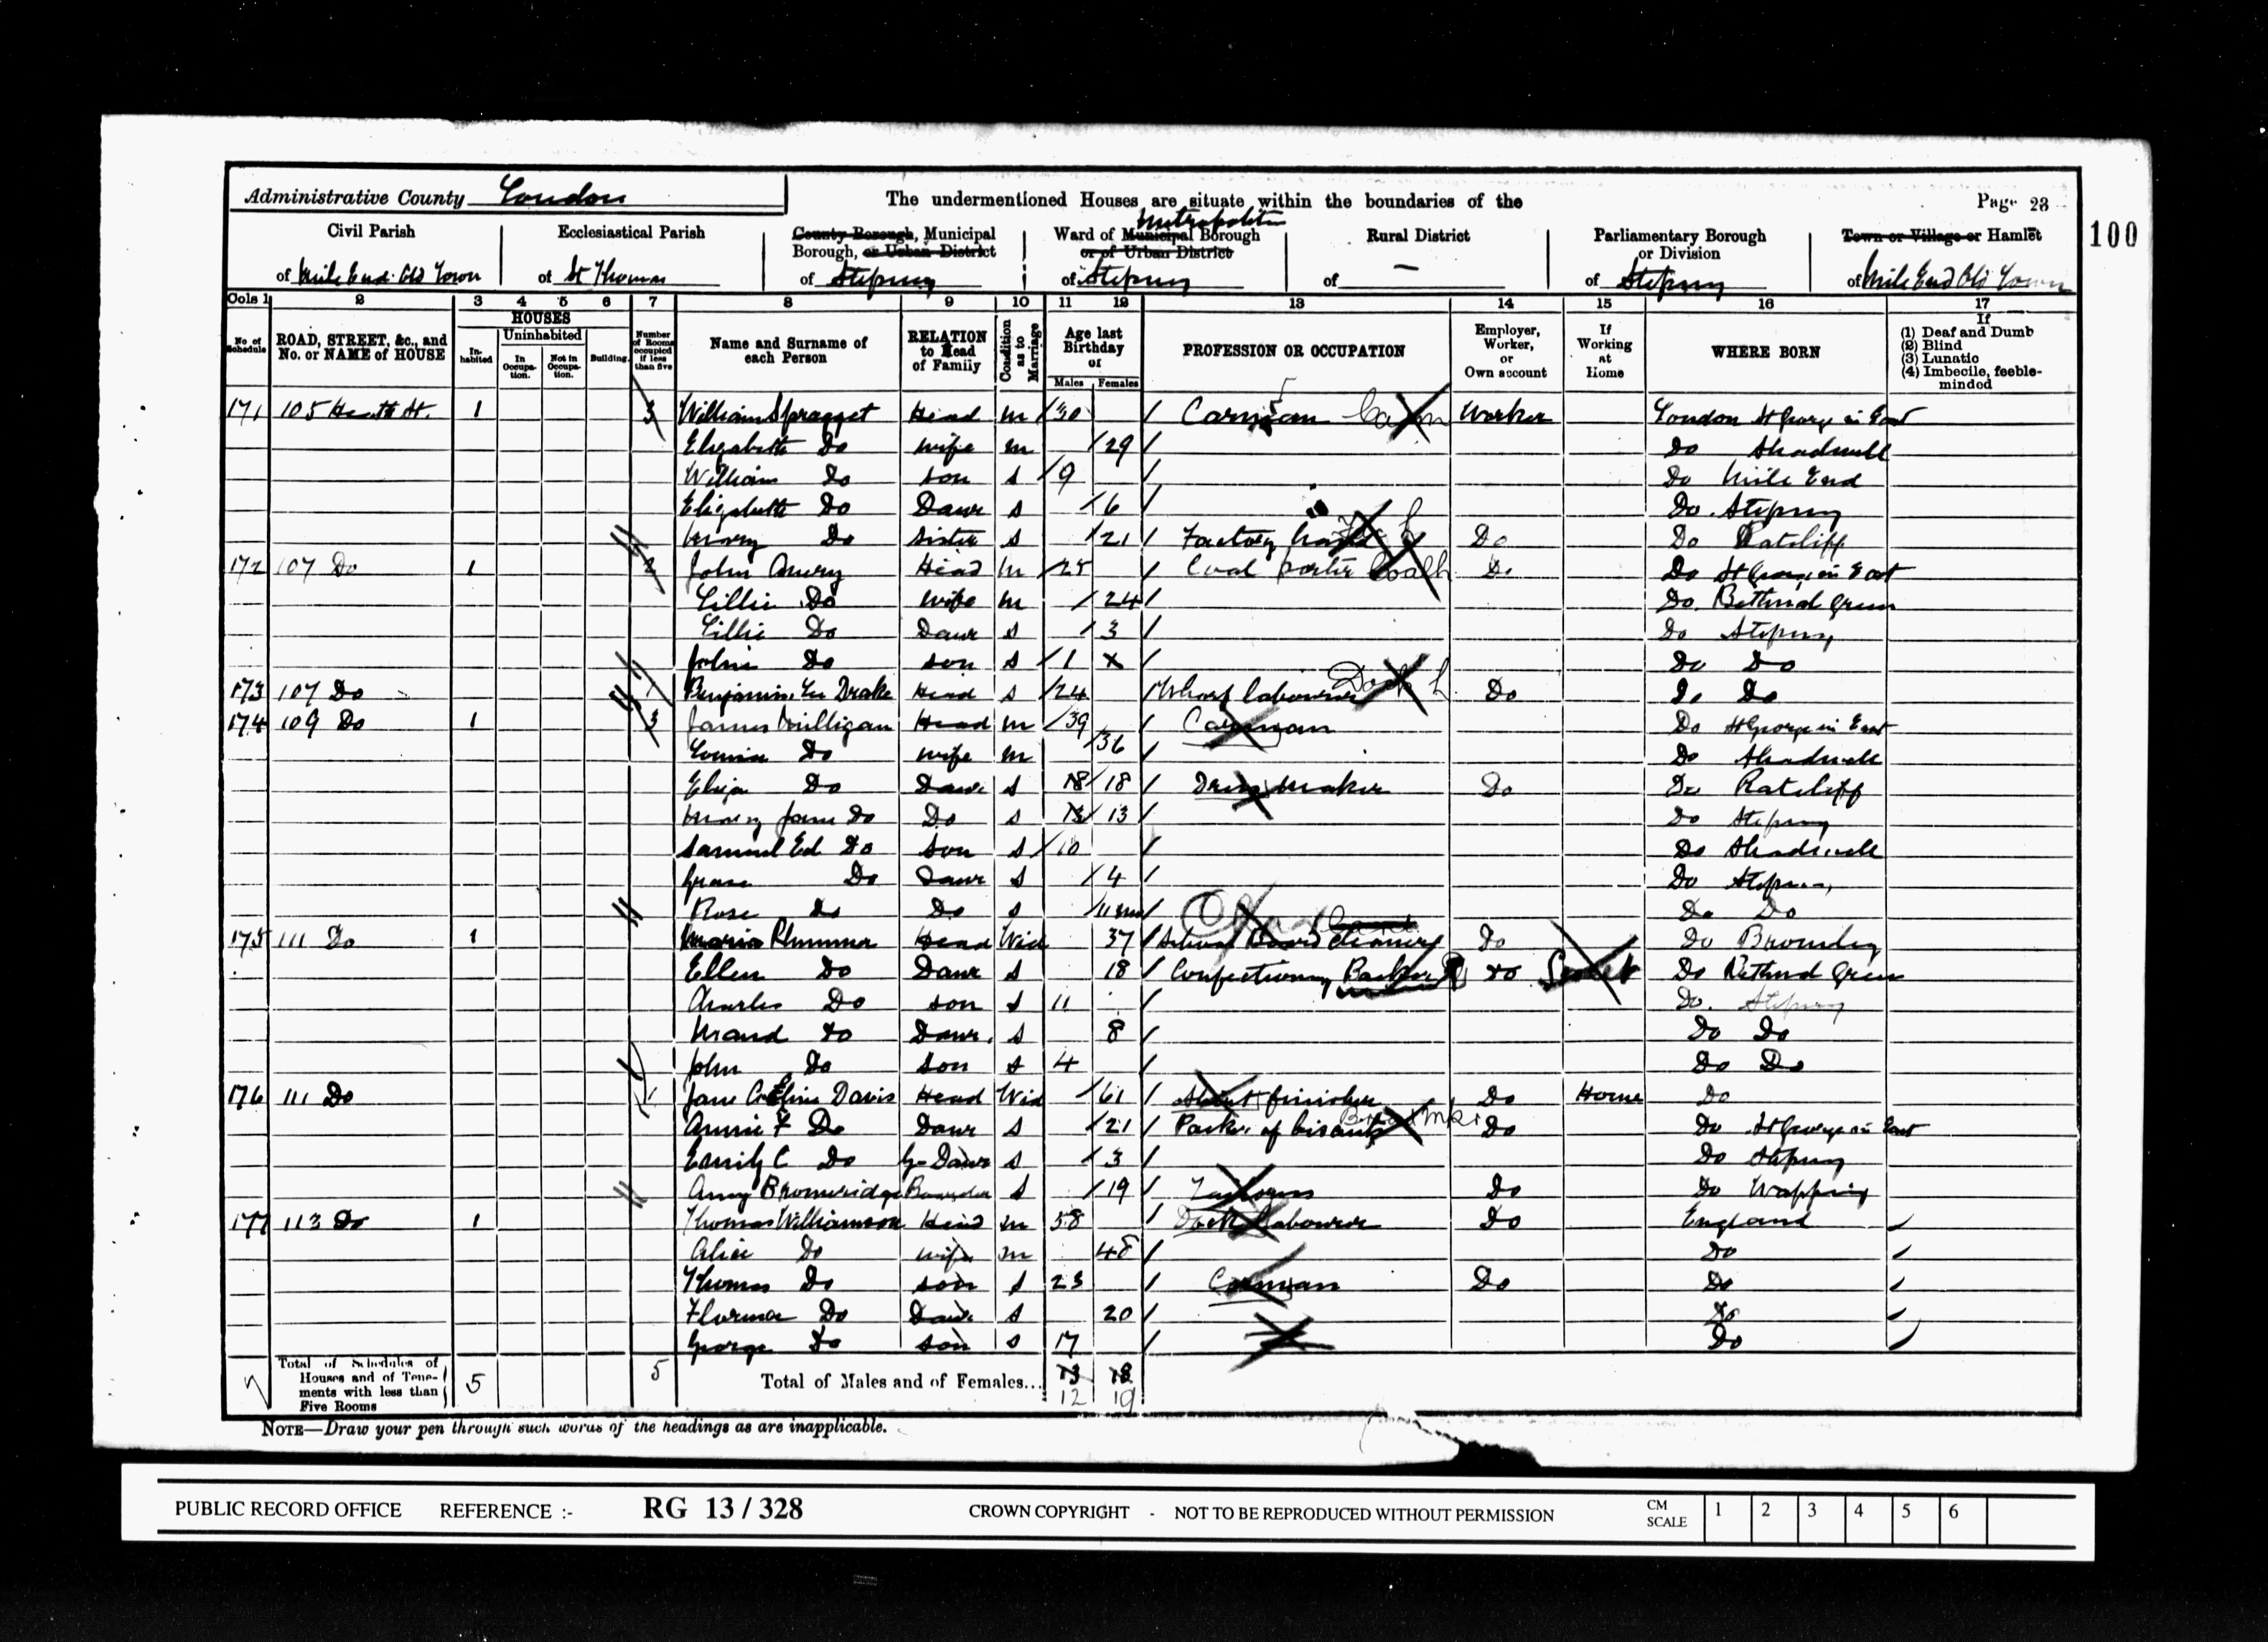 Administrative County London
The undermentioned Houses are situate within the boundaries of the
Page 23
100
Civil Parish of Mile End Old Town
Ecclesiastical Parish of St Thomas
County Borough, Municipal Borough, or Urban District of Stepney
Metropolitan
Ward of Municipal Borough or of Urban District of Stepney
Rural District of —
Parliamentary Borough or Division of Stepney
Town or Village or Hamlet of Mile End Old Town
Cols 1 2 3 4 5 6 7 8 9 10 11 12 13 14 15 16 17
No of Schedule
ROAD, STREET, &c., and No. or NAME of HOUSE
HOUSES
Inhabited
Uninhabited
In Occupation.
Not in Occupation.
Building.
Number of Rooms occupied if less than five
Name and Surname of each Person
RELATION to Head of Family
Condition as to Marriage
Age last Birthday of
Males Females
PROFESSION OR OCCUPATION
Employer, Worker, or Own account
If Working at Home
WHERE BORN
If (1) Deaf and Dumb (2) Blind (3) Lunatic (4) Imbecile, feeble-minded
171 105 Heath St. 1 3 William Spragget Head M 30 Carman Worker London St George in East
Elizabeth Do wife M 29 Do Shadwell
William Do son S 9 Do Mile End
Elizabeth Do Daur S 6 Do Stepney
Mary Do Sister S 21 Factory hand Do Do Ratcliff
172 107 Do 1 2 John Do Head M Coal porter Do Do St George in East
Lillie Do wife M 24 Do Bethnal Green
Lillie Do Daur S 3 Do Stepney
John Do son S 1 x Do Do
173 107 Do 1 Benjamin Drake Head S 24 Wharf labourer Dock L Do Do Do
174 109 Do 1 3 James Milligan Head M 39 Carman Do St George in East
Louisa Do wife M 36 Do Shadwell
Eliza Do Daur S 18 18 Dress maker Do Do Ratcliff
Mary Jane Do Do S 13 13 Do Stepney
Samuel Ed Do Son S 10 Do Shadwell
Do Daur S 4 Do Stepney
Rose Do Do S 11 mo Do Do
175 111 Do 1 Maria Plummer Head Wid 37 School Board Cleaner Do Do Bromley
Ellen Do Daur S 18 Confectionery Packer Do Do Bethnal Green
Charles Do son S 11 Do Stepney
Maud Do Daur S 8 Do Do
John Do Son S 4 Do Do
176 111 Do 1 Jane Davis Head Wid 61 finisher Do Home Do
Annie F Do Daur S 21 Packer of biscuits Do Do St George in East
Emily C Do G-Daur S 3 Do Stepney
Amy Bromridge Boarder S 19 Do Do Wapping
177 113 Do 1 Thomas Williamson Head M 58 Dock labourer Do England
Alice Do wife M 48 Do
Thomas Do son S 23 Carman Do Do
Florence Do Daur S 20 Do
George Do son S 17 Do
7 Total of Schedules of Houses and of Tenements with less than Five Rooms 5 5 Total of Males and of Females... 13 18
12 19
NOTE—Draw your pen through such words of the headings as are inapplicable.
PUBLIC RECORD OFFICE REFERENCE :- RG 13 / 328 CROWN COPYRIGHT - NOT TO BE REPRODUCED WITHOUT PERMISSION CM SCALE 1 2 3 4 5 6